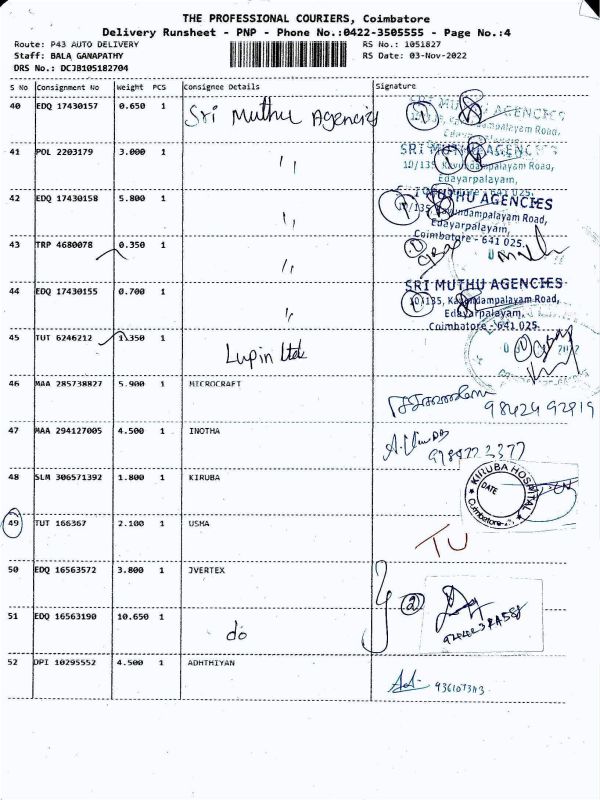 THE PROFESSIONAL COURIERS, Coimbatore
Delivery Runsheet - PNP - Phone No.:0422-3505555 - Page No.:4
Route: P43 AUTO DELIVERY
Staff: BALA GANAPATHY
DRS No.: DCJB105182704
RS No.: 1051827
RS Date: 03-Nov-2022
S No Consignment No Weight PCS Consignee Details Signature
40 EDQ 17430157 0.650 1 Sri Muthu Agencies
MUTHU AGENCIES
Kavundampalayam Road,
Edayarpalayam,
41 POL 2203179 3.000 1 ,,
SRI MUTHU AGENCIES
10/135, Kavundampalayam Road,
Edayarpalayam,
Coimbatore - 641 025.
42 EDQ 17430158 5.800 1 ,,
MUTHU AGENCIES
10/135, Kavundampalayam Road,
Edayarpalayam,
Coimbatore - 641 025.
43 TRP 4680078 0.350 1 ,,
44 EDQ 17430155 0.700 1 ,,
SRI MUTHU AGENCIES
10/135, Kavundampalayam Road,
Edayarpalayam,
Coimbatore - 641 025.
45 TUT 6246212 1.350 1 Lupin Ltd
46 MAA 285738827 5.900 1 MICROCRAFT
47 MAA 294127005 4.500 1 INOTHA
48 SLM 306571392 1.800 1 KIRUBA
KIRUBA HOSPITAL
DATE
Coimbatore
49 TUT 166367 2.100 1 USHA
TU
50 EDQ 16563572 3.800 1 JVERTEX
2
51 EDQ 16563190 10.650 1 do
52 DPI 10295552 4.500 1 ADHTHIYAN